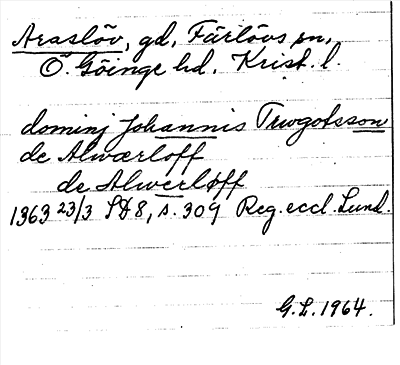 Araslöv, gd, Färlövs sn,
Ö. Göinge hd. Krist. l.
dominj Johannis Truogotsson
de Alwærloff
de Alwerløff
1363 23/3 SD 8, s. 309 Reg. eccl. Lund.
G.L. 1964.